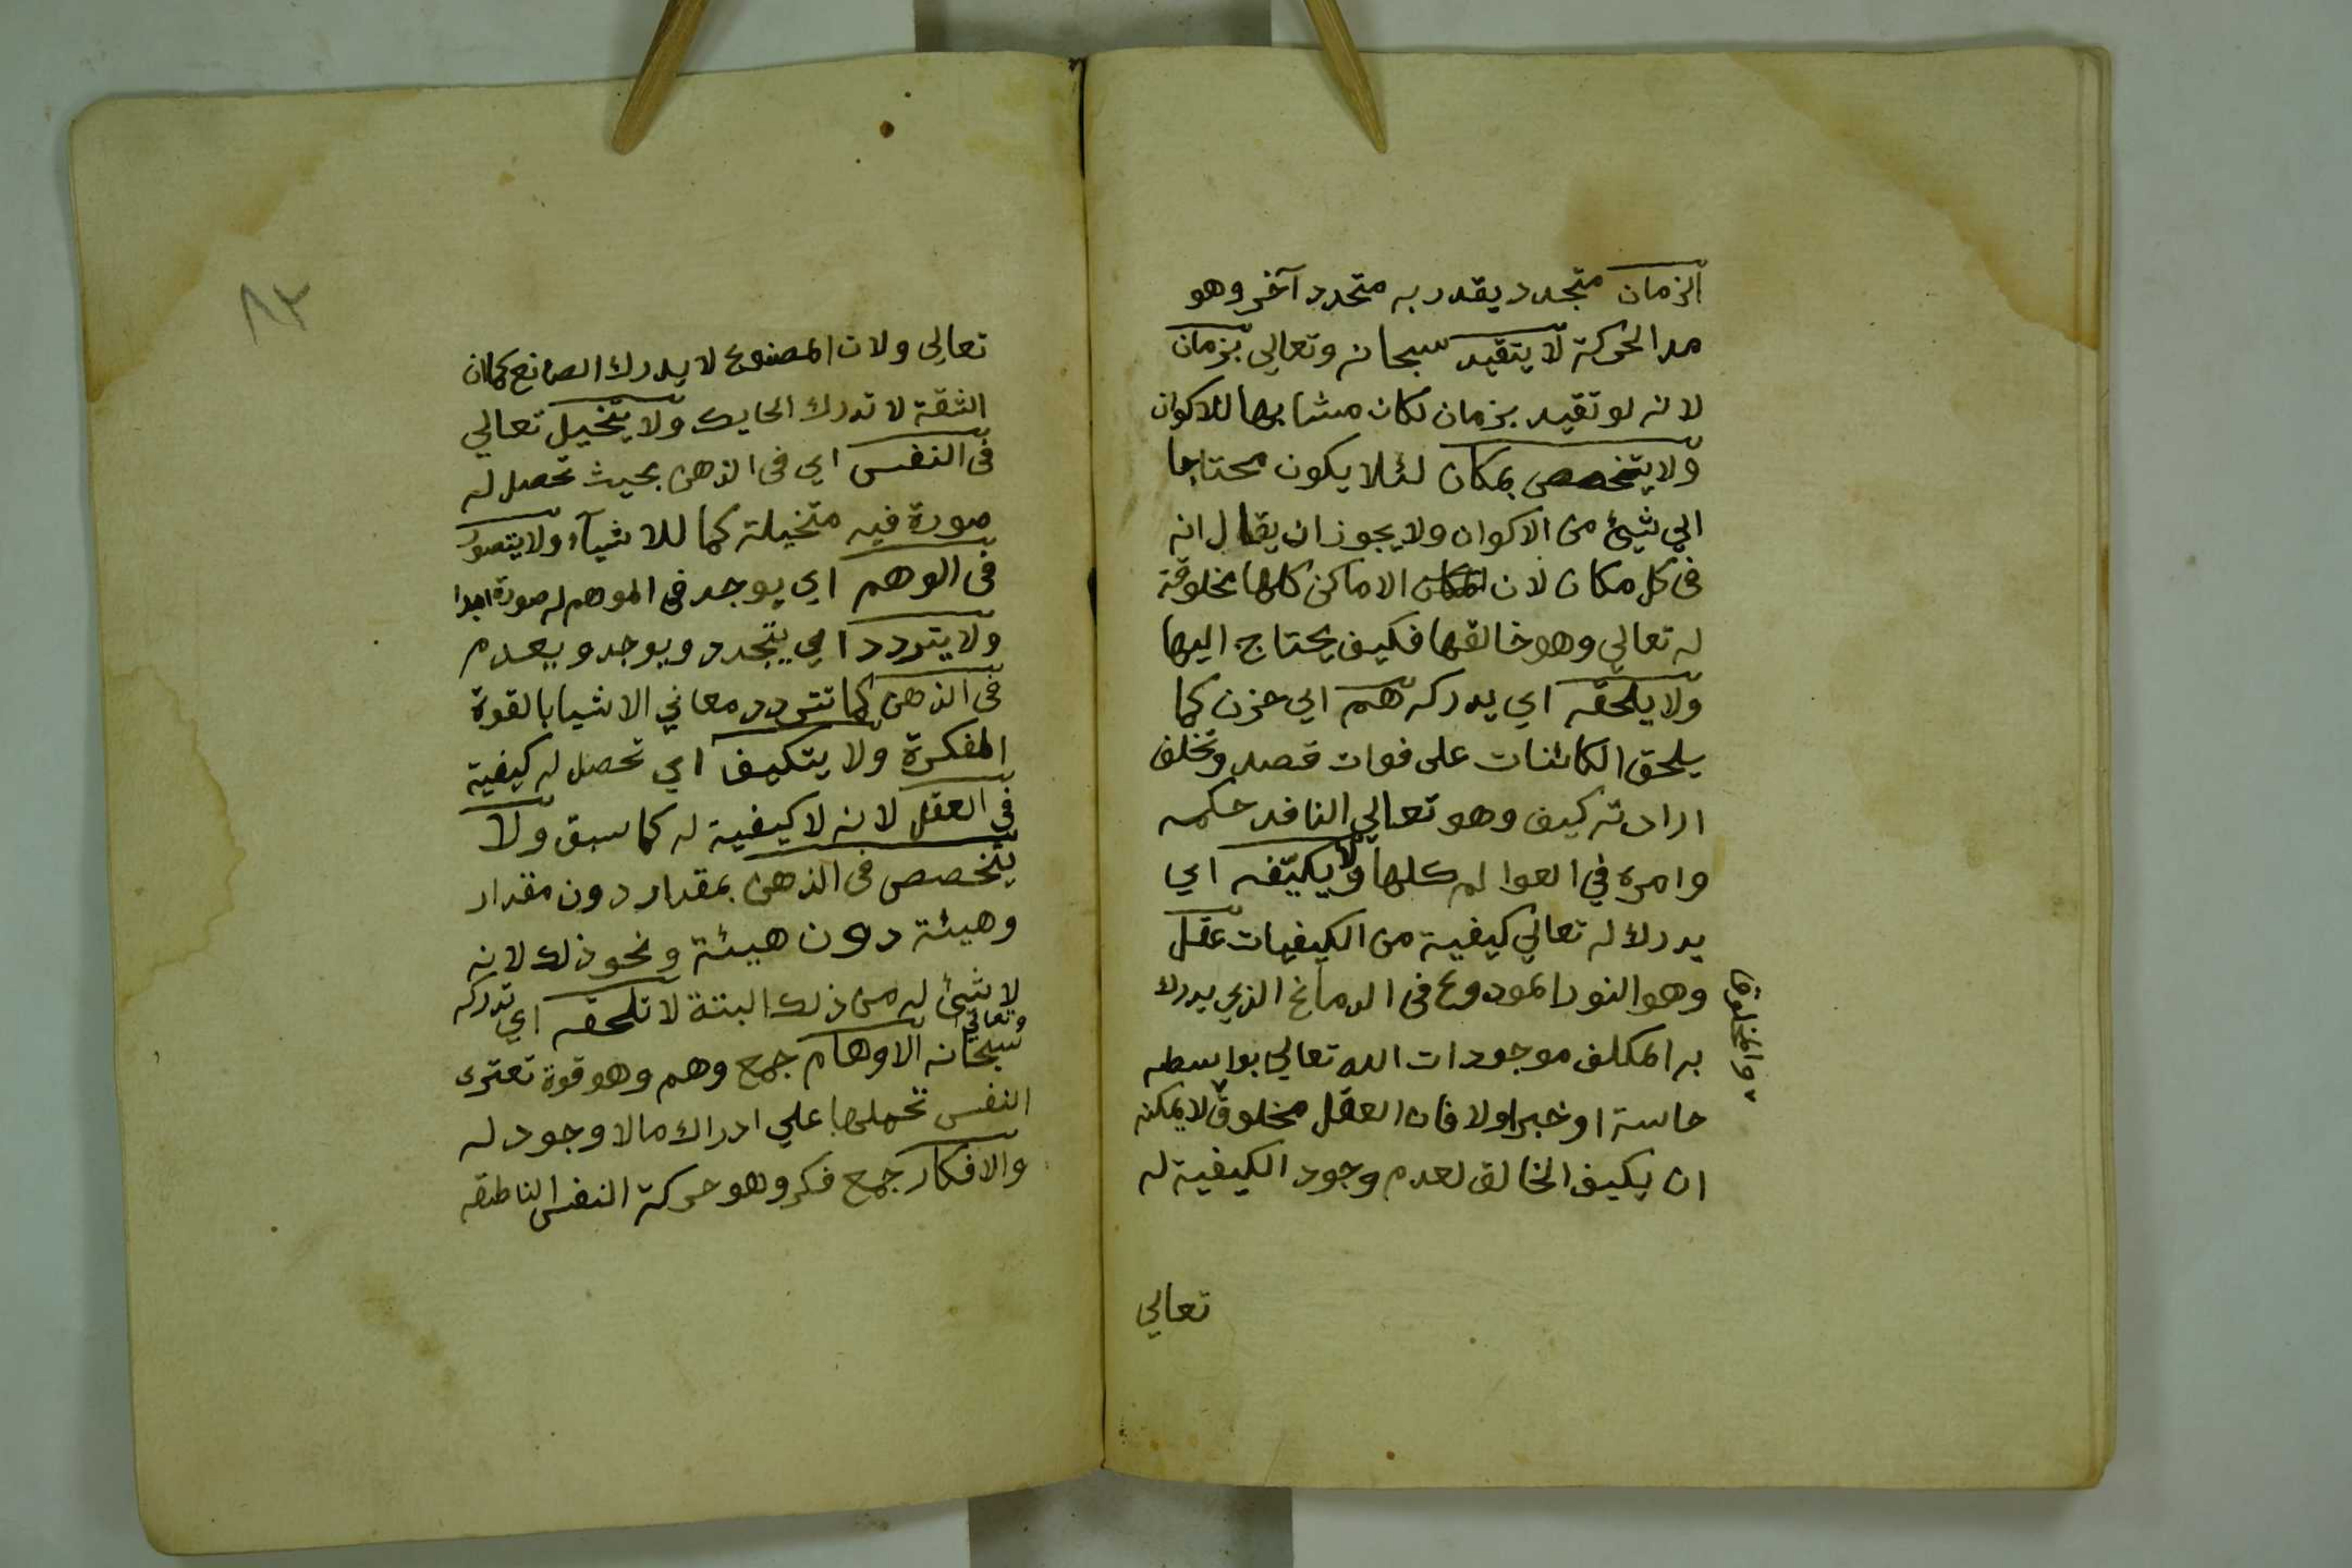 الزمان متجدد يقدر به متجدد آخر وهو
مد الحركة لا يتقيد سبحانه وتعالي بزمان
لانه لو تقيد بزمان لكان مشابها للاكوان
ولا يتخصص بمكان لئلا يكون محتاجا
الي شيئ من الاكوان ولا يجوز ان يقال انه
في كل مكان لان الاماكن كلها مخلوقة
له تعالي وهو خالقها فكيف يحتاج اليها
ولا يلحقه اي يدركه هم اي حزن كما
يلحق الكائنات على فوات قصد وتخلف
ارادته كيف وهو تعالي النافد حكمه
وامره في العوالم كلها ولا يكيّفه اي
يدرك له تعالي كيفية من الكيفيات عقل
وهو النور المودوع في الدماغ الذي يدرك
به المكلف موجودات الله تعالي بواسطه
حاسة او خبر اولا فان العقل مخلوق لا يمكنه
ان يكيف الخالق لعدم وجود الكيفية له
والمخلوق
تعالي
٨٣
تعالي ولان المصنوع لا يدرك الصانع كما ان
الشقة لا تدرك الحايك ولا يتخيل تعالي
في النفس اي في الذهن بحيث تحصل له
صورة فيه متخيلة كما للاشيآء ولا يتصور
في الوهم اي يوجد في الموهم له صورة ابدا
ولا يتردد اي يتجدد ويوجد ويعدم
في الذهن كما تتردد معاني الاشيا بالقوة
المفكرة ولا يتكيف اي تحصل له كيفية
في العقل لانه لا كيفية له كما سبق ولا
يتخصص في الذهن بمقدار دون مقدار
وهيئة دون هيئة ونحو ذلك لانه
لا شيئ له من ذلك البتة لا تلحقه اي تدركه
سبحانه وتعالي الاوهام جمع وهم وهو قوة تعترى
النفس تحملها علي ادراك ما لا وجود له
والافكار جمع فكر وهو حركة النفس الناطقه